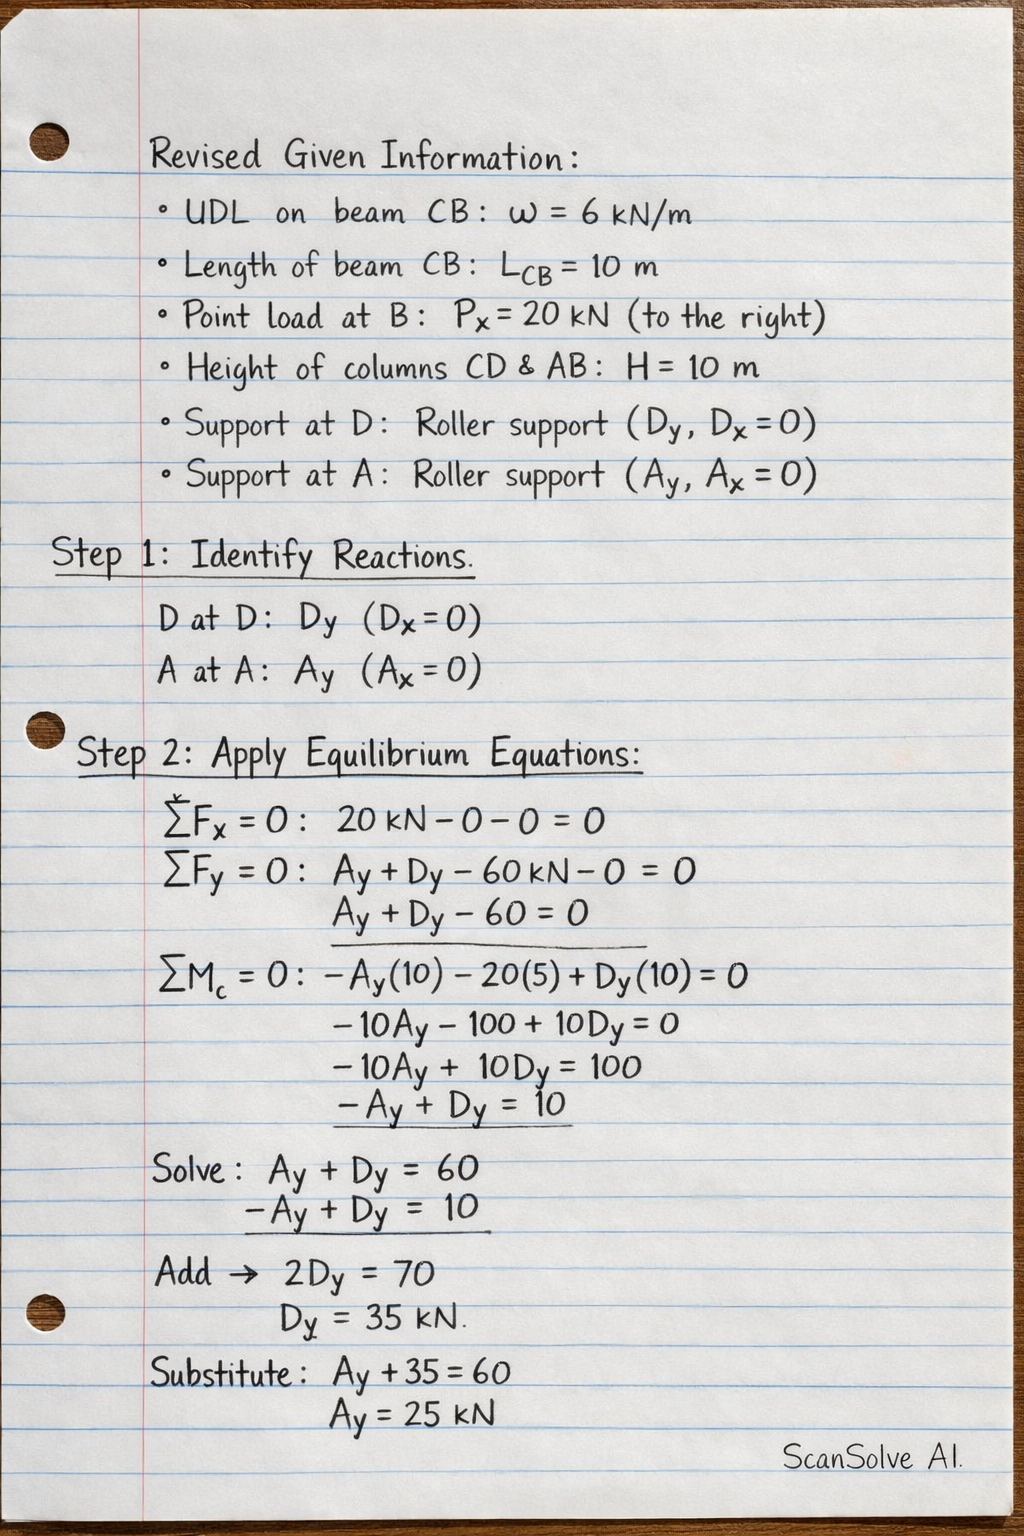 Revised Given Information:
• UDL on beam CB: ω = 6 kN/m
• Length of beam CB: L_CB = 10 m
• Point load at B: Pₓ = 20 kN (to the right)
• Height of columns CD & AB: H = 10 m
• Support at D: Roller support (Dy, Dₓ = 0)
• Support at A: Roller support (Ay, Aₓ = 0)
Step 1: Identify Reactions.
D at D: Dy (Dₓ = 0)
A at A: Ay (Aₓ = 0)
Step 2: Apply Equilibrium Equations:
ΣFₓ = 0: 20 kN − 0 − 0 = 0
ΣFy = 0: Ay + Dy − 60 kN − 0 = 0
Ay + Dy − 60 = 0
ΣM_c = 0: −Ay(10) − 20(5) + Dy(10) = 0
−10Ay − 100 + 10Dy = 0
−10Ay + 10Dy = 100
−Ay + Dy = 10
Solve: Ay + Dy = 60
−Ay + Dy = 10
Add → 2Dy = 70
Dy = 35 kN.
Substitute: Ay + 35 = 60
Ay = 25 kN
ScanSolve AI.